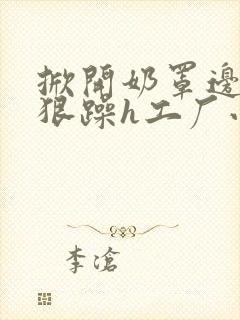 掀開奶罩邊
狠躁h工厂、
李滄